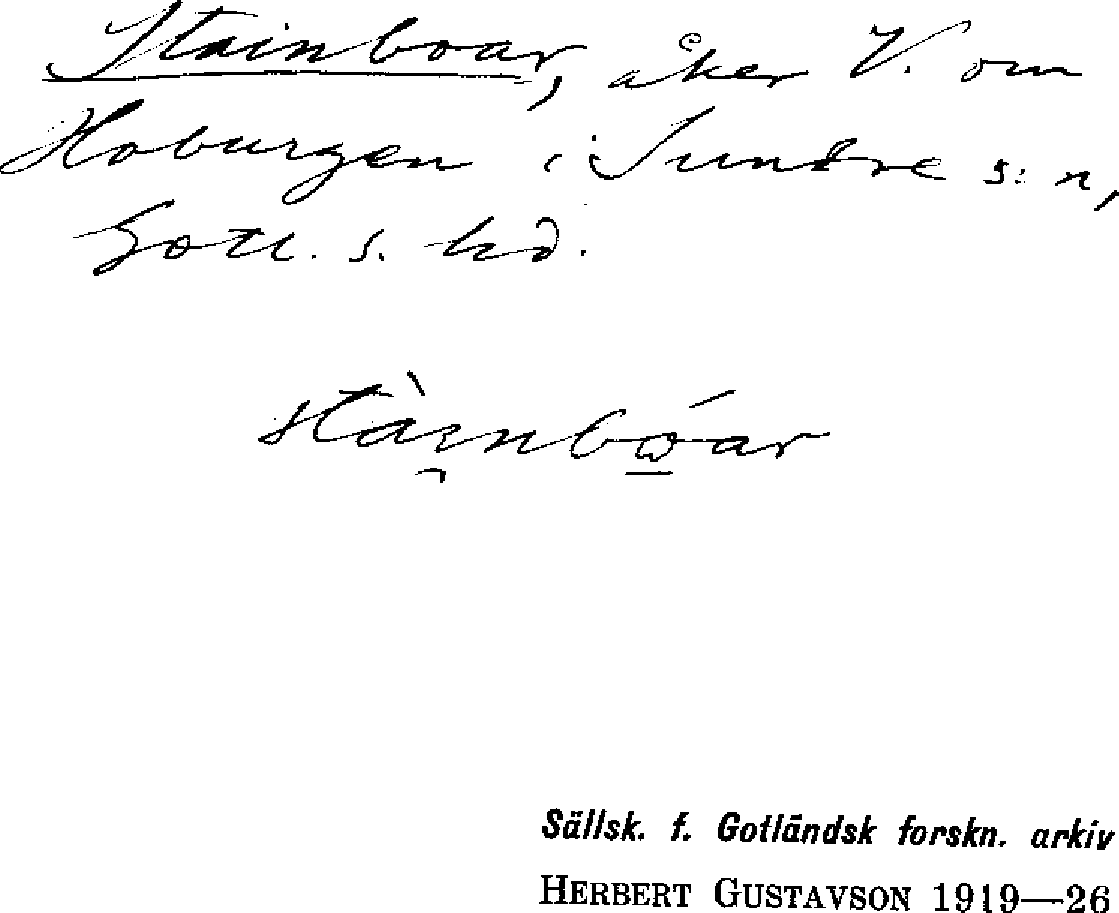 Stainboar, åker V. om
Hoburgen i Sundre s:n,
Gotl. s. hd.
stàınbǿar
Sällsk. f. Gotländsk forskn. arkiv
HERBERT GUSTAVSON 1919—26